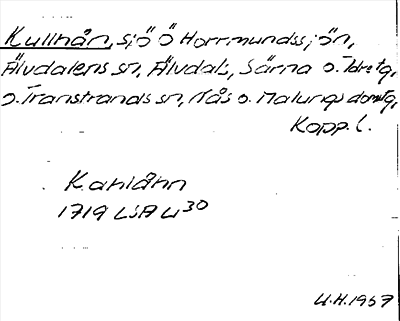 Kullnån, sjö Ö Horrmundssjön,
Älvdalens sn, Älvdals, Särna o. Idre tg,
o. Transtrands sn, Nås o. Malungs domtg,
Kopp. l.
Kanlånn
1719 LSA U30
U.H. 1957